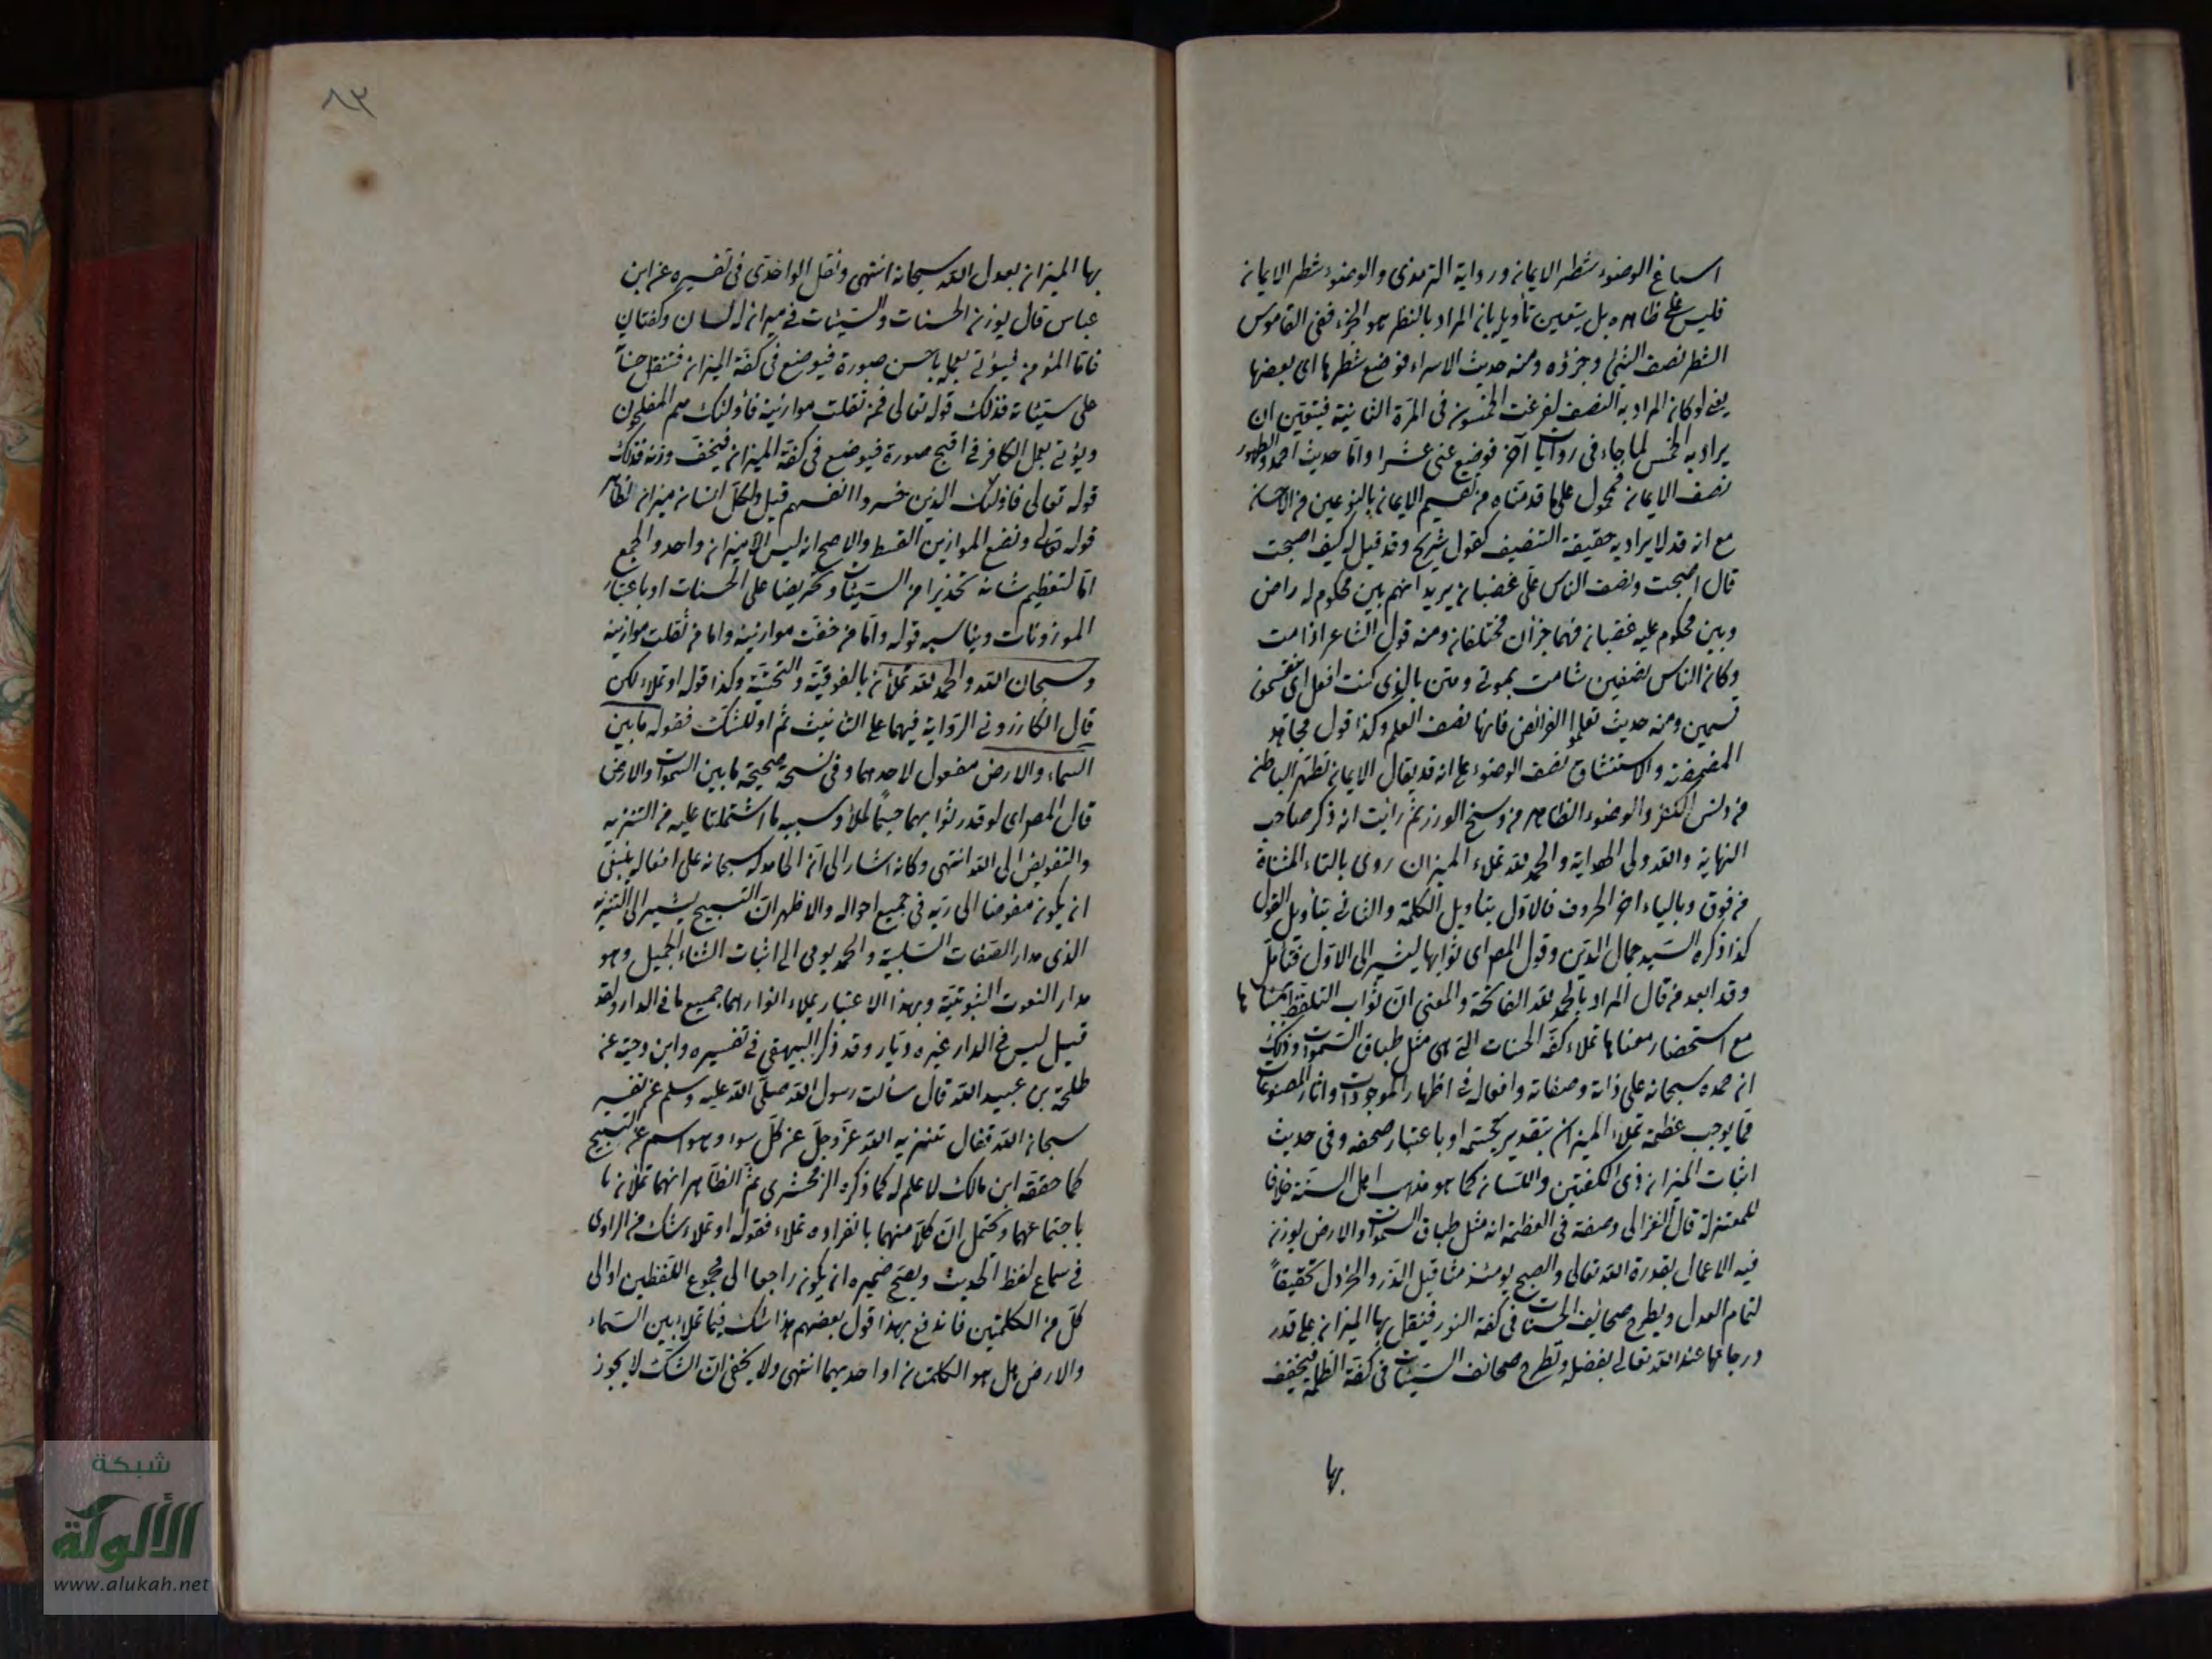 اسباغ الوضوء شطر الايمان ورواية الترمذى والوضوء شطر الايمان
فليس على ظاهره بل يتعين تأويله بان المراد بالشطر هو الجزء ففى القاموس
الشطر نصف الشئ وجزؤه ومنه حديث الاسراء فوضع شطرها اى بعضها
يعنى لو كان المراد به النصف لفرغت الخمسون فى المرّة الثانية فيتعيّن ان
يراد به الخمس لما جاء فى روايات آخر فوضع عنى عشرا وامّا حديث احمد والطهور
نصف الايمان فمحمول على ما قدمناه من تقسيم الايمان بالنوعين من الاحسان
مع انه قد لا يراد به حقيقة التنصيف كقول شريح وقد قيل له كيف اصبحت
قال اصبحت ونصف الناس علىّ غضبان يريد انهم بين محكوم له راض
وبين محكوم عليه غضبان فهما جزأن مختلفان ومنه قول الشاعر اذا مت
وكان الناس نصفين شامت بموتى ومثن بالذى كنت افعل اى منقسمون
قسمين ومنه حديث تعلموا الفرائض فانها نصف العلم وكذا قول مجاهد
المضمضة والاستنشاق نصف الوضوء على انه قد يقال الايمان تطهر الباطن
من دنس الكفر والوضوء الظاهر من وسخ الوزر ثم رأيت انه ذكر صاحب
النهاية والله ولى الهداية والحمد لله تملاء الميزان روى بالتاء المثناة
من فوق وبالياء اخر الحروف فالاوّل بتاويل الكلمة والثانى بتاويل القول
كذا ذكره السيد جمال الدين وقول المص اى ثوابها يشير الى الاوّل فتأمل
وقد ابعد من قال المراد بالحمد لله الفاتحة والمعنى انّ ثواب التلفظ
مع استحضار معناها تملاء كفة الحسنات التى هى مثل طباق السموات وذلك
ان حمده سبحانه على ذاته وصفاته وافعاله فى اظهار الموجودات واثار المصنوعات
مما يوجب عظمة تملاء الميزان بتقدير تجسّمه او باعتبار صحفه وفى حديث
اثبات الميزان ذى الكفتين واللسان كما هو مذهب اهل السنّة خلافا
للمعتزلة قال الغزالى وصفته فى العظمة انه مثل طباق السموات والارض يوزن
فيه الاعمال بقدرة الله تعالى والصبح يومئذ مثاقيل الذر والخردل تحقيقا
لتمام العدل ويطرح صحايف الحسنات فى كفة النور فيثقل بها الميزان على قدر
درجاتها عند الله تعالى بفضله وتطرح صحائف السيئات فى كفة الظلمة فيخفف
بها
٨٣
بها الميزان بعدل الله سبحانه انتهى ونقل الواحدى فى تفسيره عن ابن
عباس قال يوزن الحسنات والسيئات فى ميزان له لسان وكفتان
فامّا المؤمن فيؤتى بعمله باحسن صورة فيوضع فى كفة الميزان فتثقل حسناته
على سيئاته فذلك قوله تعالى فمن ثقلت موازينه فاولئك هم المفلحون
ويؤتى بعمل الكافر فى اقبح صورة فيوضع فى كفة الميزان فيخفّ وزنه فذلك
قوله تعالى فاولئك الذين خسروا انفسهم قيل ولكلّ انسان ميزان لظاهر
قوله تعالى ونضع الموازين القسط والاصح انه ليس الا ميزان واحد والجمع
امّا لتعظيم شانه تحذيرا من السيئات وتحريضا على الحسنات او باعتبار
الموزونات ويناسبه قوله وامّا من خفت موازينه واما من ثقلت موازينه
وسبحان الله والحمد لله تملأن بالفوقية والتحتيّة وكذا قوله او تملاء لكن
قال الكازرونى الرواية فيهما على التانيث ثم او للشك فقوله ما بين
السماء والارض مفعول لاحدهما وفى نسخة صحيحة ما بين السموات والارض
قال المص اى لو قدر ثوابهما جسمًا لملأ وسببه ما اشتملتا عليه من التنزيه
والتفويض الى الله انتهى وكانه اشار الى انّ الحامد له سبحانه على افعاله ينبغى
ان يكون مفوضا الى ربّه فى جميع احواله والاظهر انّ التسبيح يشير الى التنزيه
الذى مدار الصفات السّلبيّة والحمد يومى الى اثبات الثناء الجميل وهو
مدار النعوت الثبوتيّة وبهذا الاعتبار يملاء انوارهما جميع ما فى الدار ولقد
قيل ليس فى الدار غيره ديّار وقد ذكر البيهقى فى تفسيره وابن دحية عن
طلحة بن عبيد الله قال سألت رسول الله صلّى الله عليه وسلم عن تفسير
سبحان الله فقال تنزيه الله عزّ وجلّ عن كلّ سوء وهو اسم عن التسبيح
كما حققه ابن مالك لا علم له كما ذكره الزمخشرى ثمّ الظاهر انهما تملأن ما
باجتماعهما ويحتمل انّ كلّا منهما بانفراده تملاء فقوله او تملاء شك من الراوى
فى سماع لفظ الحديث ويصح ضميره ان يكون راجعا الى مجموع اللفظين او الى
كلّ من الكلمتين فاندفع بهذا قول بعضهم هذا شك فيما تملاء بين السّماء
والارض هل هو الكلمتان او احديهما انتهى ولا يخفى انّ الشك لا يجوز
شبكة
الألوكة
www.alukah.net